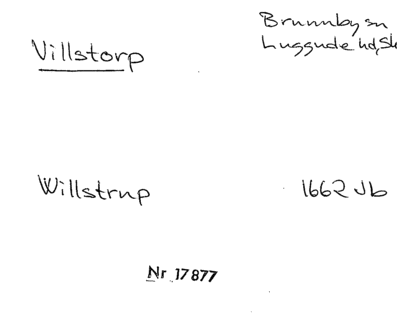 Villstorp
Brunnby sn
Luggude hd, Sk
Willstrup
1662 Jb
Nr 17877